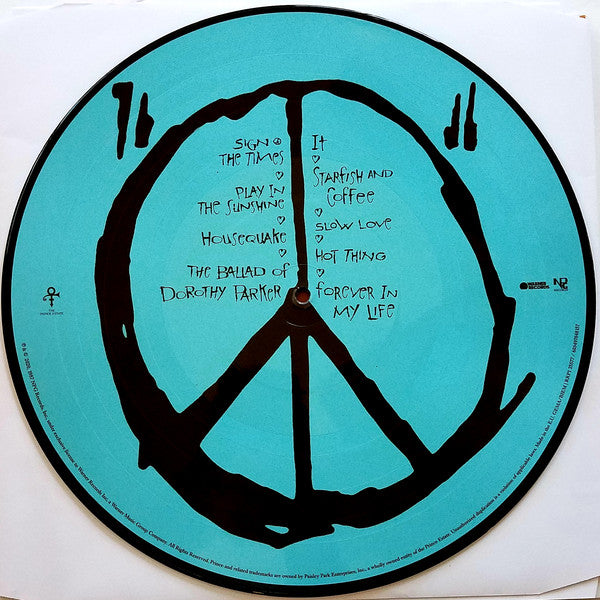 SIGN ☮
THE TIMES
♡
PLAY IN
THE SUNSHINE
♡
HOUSEQUAKE
♡
THE BALLAD OF
DOROTHY PARKER
It
♡
STARFISH AND
COFFEE
♡
SLOW LOVE
♡
HOT THING
♡
FOREVER IN
MY LIFE
THE
PRINCE ESTATE
WARNER
RECORDS
NPG
RECORDS
℗ & © 2020, 1987 NPG Records, Inc., under exclusive license to Warner Records Inc., a Warner Music Group Company. All Rights Reserved. Prince and related trademarks are owned by Paisley Park Enterprises, Inc., a wholly owned entity of the Prince Estate. Unauthorized duplication is a violation of applicable laws. Made in the E.U.